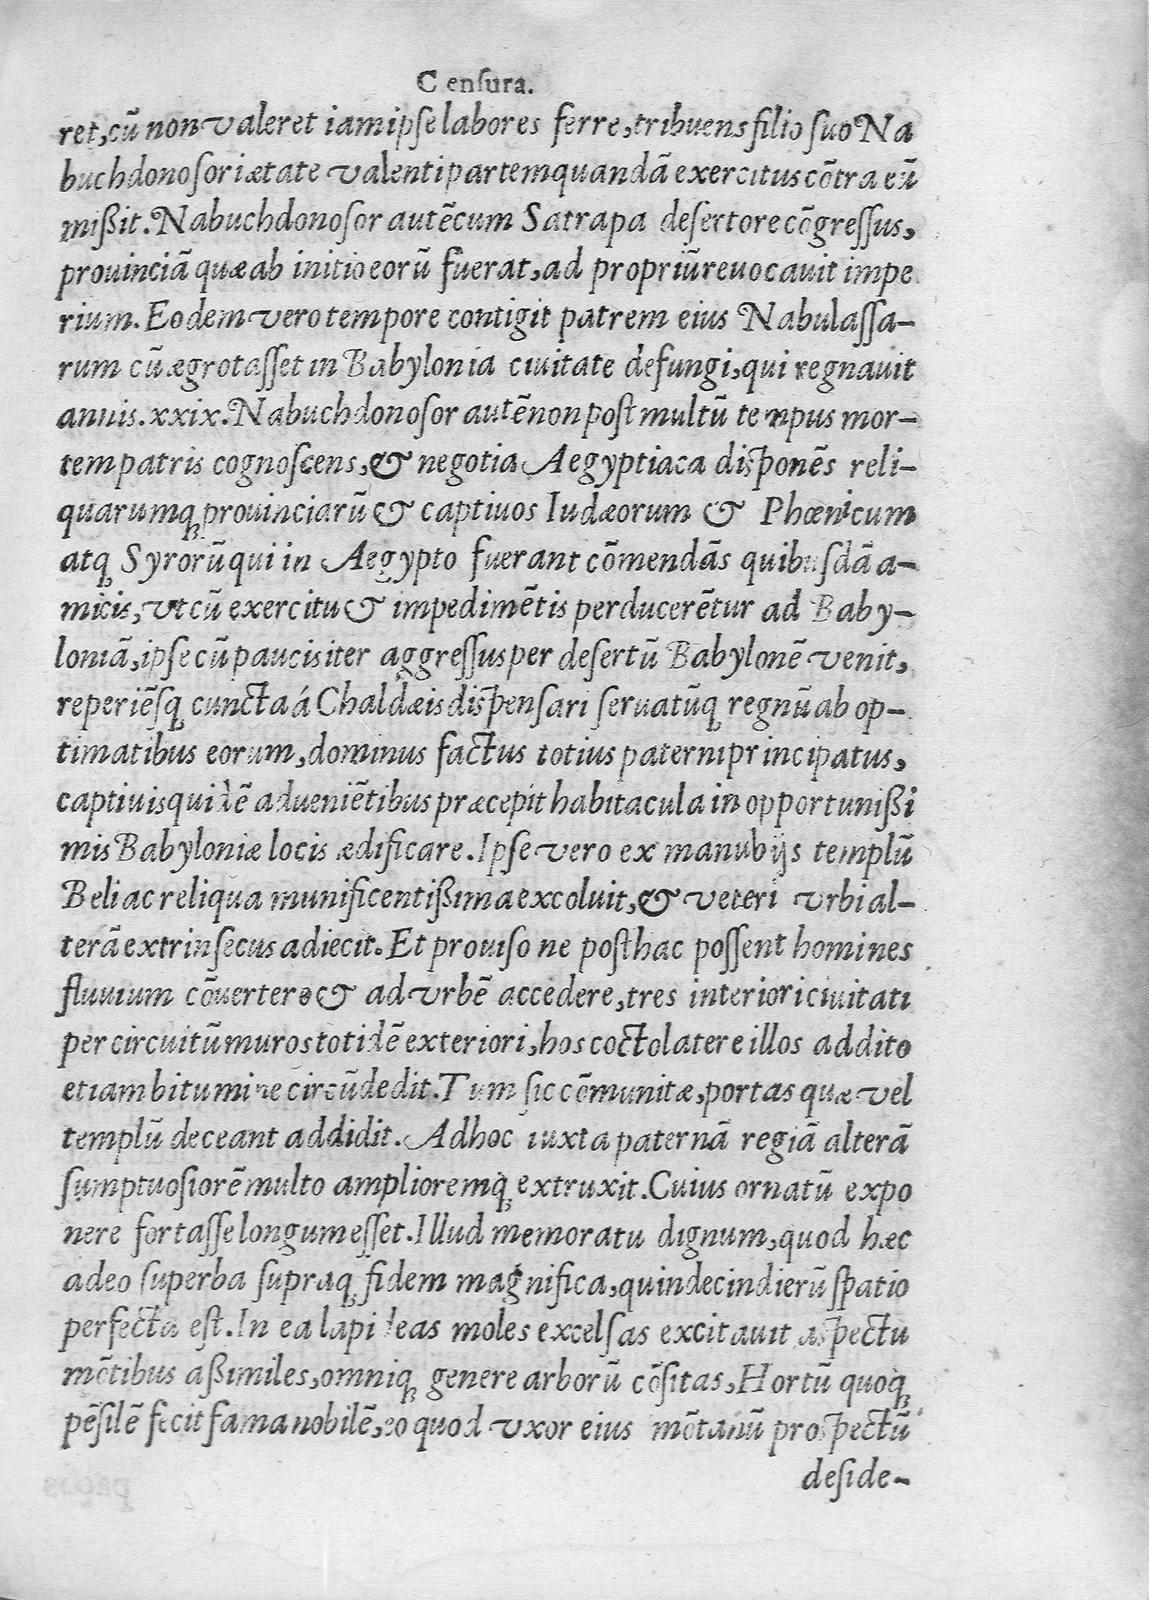 Censura.
ret, cū non valeret iam ipse labores ferre, tribuens filio suo Na
buchdonosori ætate valenti partem quandā exercitus cōtra eū
mißit. Nabuchdonosor autē cum Satrapa desertore cōgressus,
prouinciā quæ ab initio eorū fuerat, ad propriū reuocauit impe
rium. Eodem vero tempore contigit patrem eius Nabulassa-
rum cū ægrotasset in Babylonia ciuitate defungi, qui regnauit
annis. xxix. Nabuchdonosor autē non post multū tempus mor-
tem patris cognoscens, & negotia Aegyptiaca disponēs reli-
quarumq; prouinciarū & captiuos Iudæorum & Phœnicum
atq; Syrorū qui in Aegypto fuerant cōmendās quibusdā a-
micis, vt cū exercitu & impedimētis perducerētur ad Baby-
loniā, ipse cū paucis iter aggressus per desertū Babylonē venit,
reperiēsq; cuncta á Chaldæis dispensari seruatūq; regnū ab op-
timatibus eorum, dominus factus totius paterni principatus,
captiuis quidē adueniētibus præcepit habitacula in opportunißi
mis Babyloniæ locis ædificare. Ipse vero ex manubijs templū
Beli ac reliqua munificentißima excoluit, & veteri vrbi al-
terā extrinsecus adiecit. Et prouiso ne posthac possent homines
fluuium cōuertere & ad vrbē accedere, tres interiori ciuitati
per circuitū muros totidē exteriori, hos cocto latere illos addito
etiam bitumine circūdedit. Tum sic cōmunitæ, portas quæ vel
templū deceant addidit. Ad hoc iuxta paternā regiā alterā
sumptuosiorē multo amplioremq; extruxit. Cuius ornatū expo
nere fortasse longum esset. Illud memoratu dignum, quod hæc
adeo superba supraq; fidem magnifica, quindecin dierū spatio
perfecta est. In ea lapideas moles excelsas excitauit aspectu
mōtibus aßimiles, omniq; genere arborū cōsitas, Hortū quoq;
pēsilē fecit fama nobilē, eo quod vxor eius mōtanū prospectū
deside-